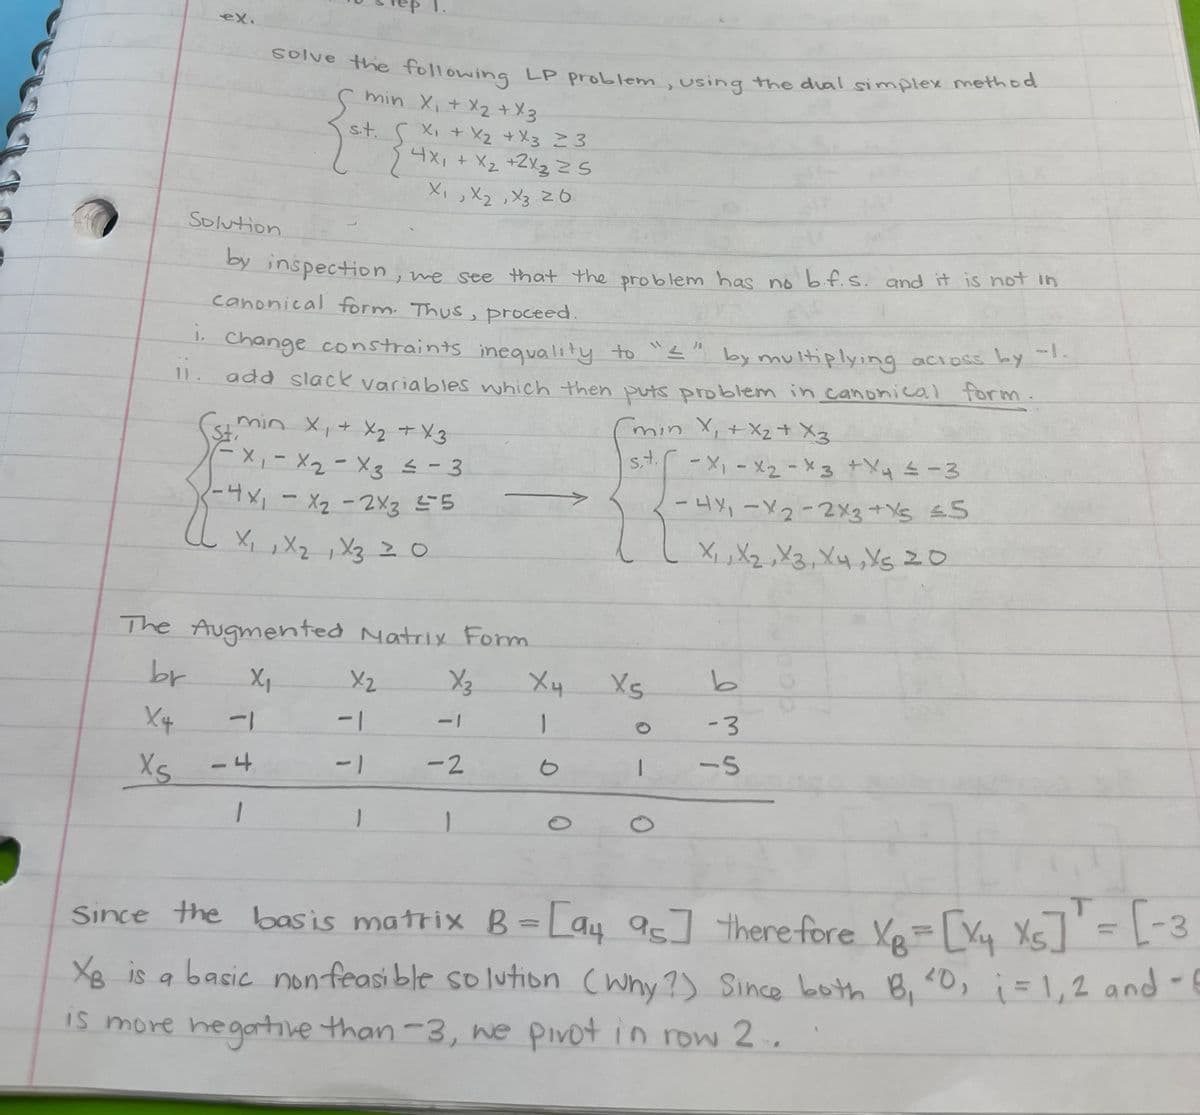 ex.
solve the following LP problem, using the dual simplex method
min X₁ + X₂ + X₃
s.t. X₁ + X₂ + X₃ ≥ 3
4X₁ + X₂ + 2X₃ ≥ 5
X₁, X₂, X₃ ≥ 0
Solution
by inspection, we see that the problem has no b.f.s. and it is not in
canonical form. Thus, proceed.
i. change constraints inequality to "≤" by multiplying across by -1.
ii. add slack variables which then puts problem in canonical form.
min X₁ + X₂ + X₃
s.t. -X₁ - X₂ - X₃ ≤ -3
-4X₁ - X₂ - 2X₃ ≤ -5
X₁, X₂, X₃ ≥ 0
→
min X₁ + X₂ + X₃
s.t. -X₁ - X₂ - X₃ + X₄ ≤ -3
-4X₁ - X₂ - 2X₃ + X₅ ≤ 5
X₁, X₂, X₃, X₄, X₅ ≥ 0
The Augmented Matrix Form
br X₁ X₂ X₃ X₄ X₅ b
X₄ -1 -1 -1 1 0 -3
X₅ -4 -1 -2 0 1 -5
1 1 1 0 0
Since the basis matrix B = [a₄ a₅] therefore X_B = [X₄ X₅]ᵀ = [-3
X_B is a basic nonfeasible solution (Why?) Since both B₁ <0, i = 1, 2 and -
is more negative than -3, we pivot in row 2.